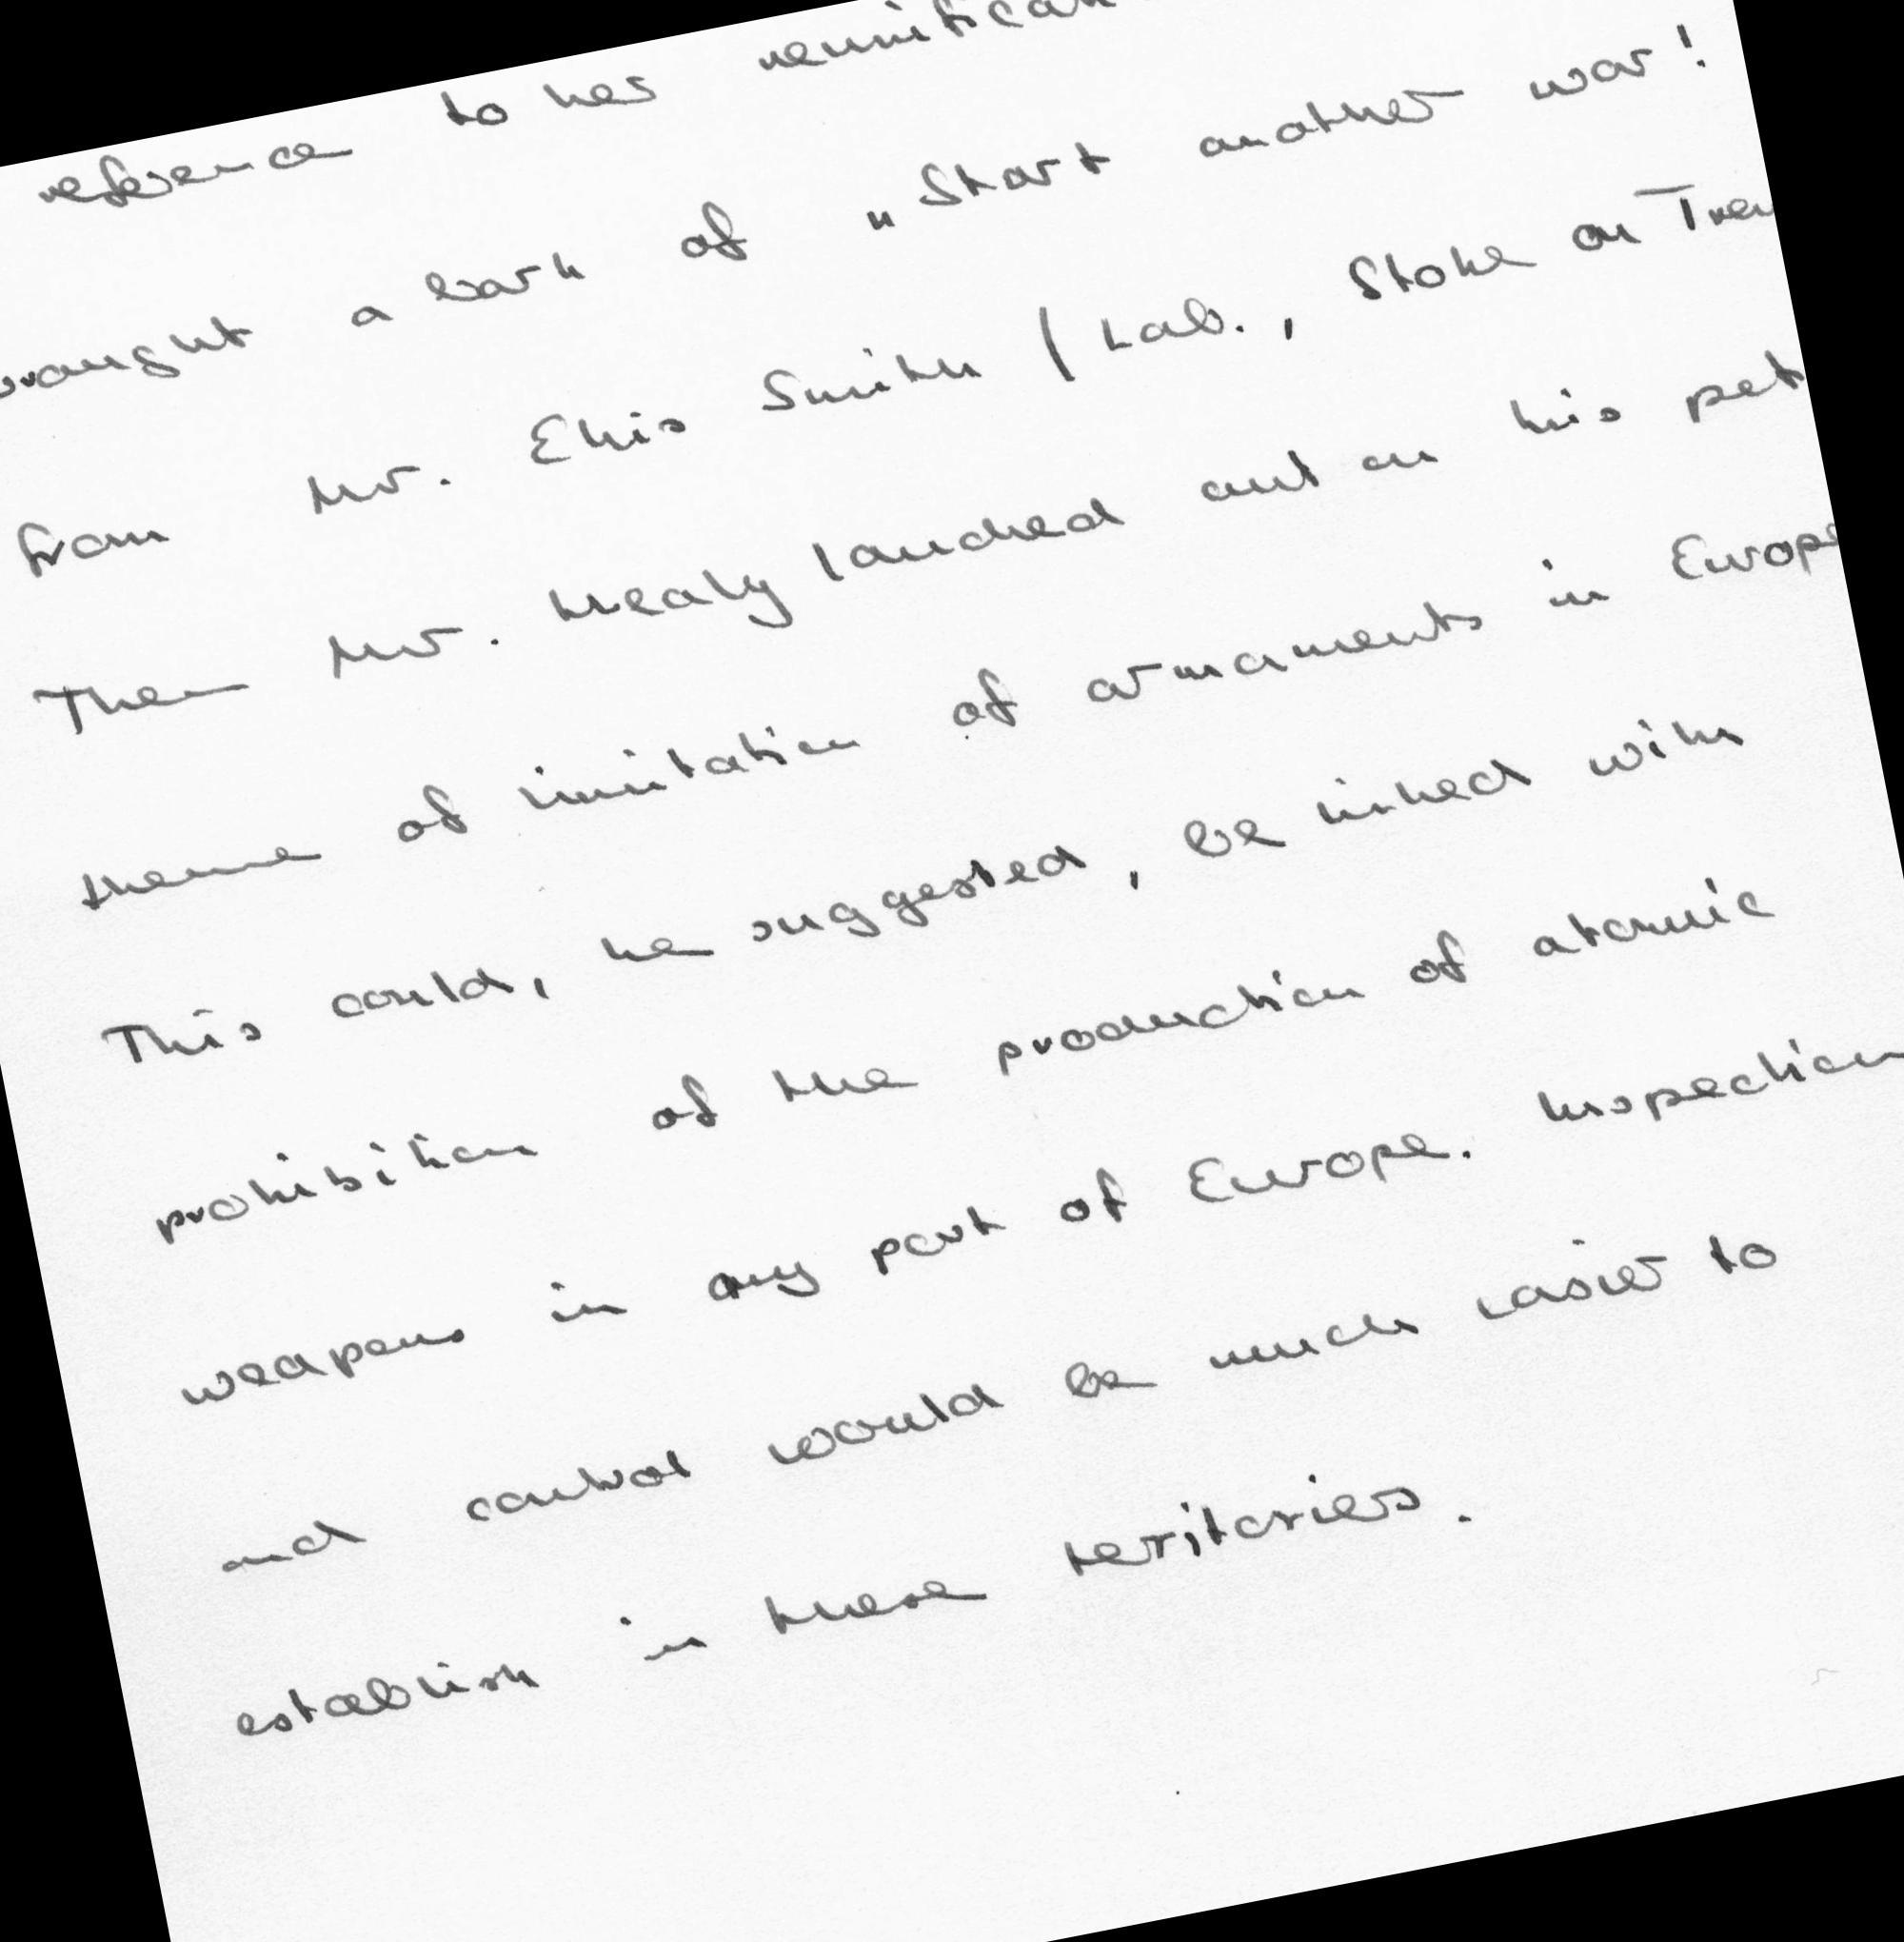 reference to her
a bark of "Start another war!
from Mr. Ellis Smith (Lab., Stoke on
Then Mr. Healy lauched out on his pet
theme of limitation of armaments in
This could, he suggested, be linked with
prohibition of the production of atomic
weapons in any part of Europe. Inspection
and control would be much easier to
establish in these territories.